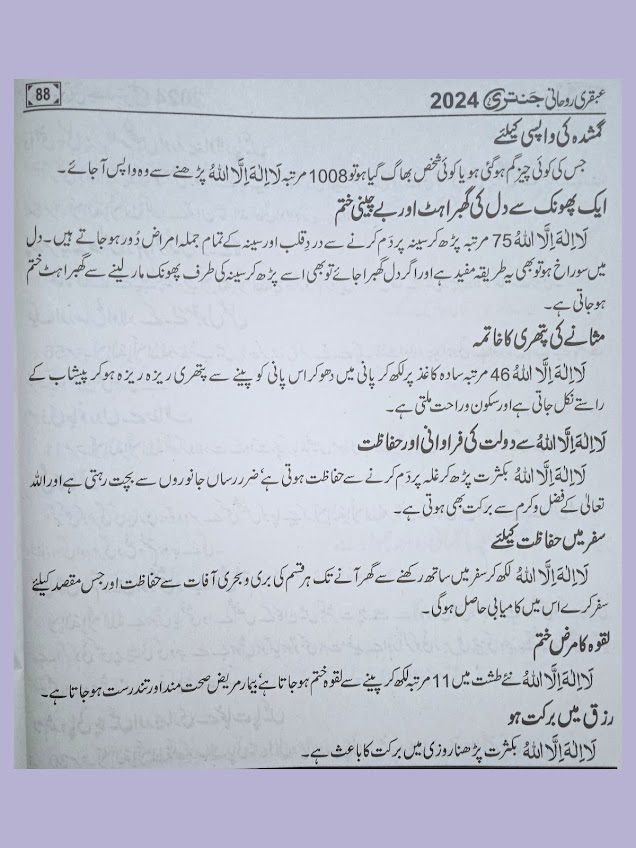 عبقری روحانی جنتری 2024
88
گمشدہ کی واپسی کیلئے
جس کی کوئی چیز گم ہوگئی ہو یا کوئی شخص بھاگ گیا ہو تو 1008 مرتبہ لَا اِلٰهَ اِلَّا اللهُ پڑھنے سے وہ واپس آجائے۔
ایک پھونک سے دل کی گھبراہٹ اور بے چینی ختم
لَا اِلٰهَ اِلَّا اللهُ 75 مرتبہ پڑھ کر سینہ پر دَم کرنے سے دردِ قلب اور سینہ کے تمام جملہ امراض دُور ہوجاتے ہیں۔ دل
میں سوراخ ہو تو بھی یہ طریقہ مفید ہے اور اگر دل گھبرا جائے تو بھی اسے پڑھ کر سینہ کی طرف پھونک مار لینے سے گھبراہٹ ختم
ہوجاتی ہے۔
مثانے کی پتھری کا خاتمہ
لَا اِلٰهَ اِلَّا اللهُ 46 مرتبہ سادہ کاغذ پر لکھ کر پانی میں دھو کر اس پانی کو پینے سے پتھری ریزہ ریزہ ہوکر پیشاب کے
راستے نکل جاتی ہے اور سکون وراحت ملتی ہے۔
لَا اِلٰهَ اِلَّا اللهُ سے دولت کی فراوانی اور حفاظت
لَا اِلٰهَ اِلَّا اللهُ بکثرت پڑھ کر غلہ پر دَم کرنے سے حفاظت ہوتی ہے‘ ضرر رساں جانوروں سے بچت رہتی ہے اور اللہ
تعالیٰ کے فضل وکرم سے برکت بھی ہوتی ہے۔
سفر میں حفاظت کیلئے
لَا اِلٰهَ اِلَّا اللهُ لکھ کر سفر میں ساتھ رکھنے سے گھر آنے تک ہر قسم کی بری و بحری آفات سے حفاظت اور جس مقصد کیلئے
سفر کرے اس میں کامیابی حاصل ہوگی۔
لقوہ کا مرض ختم
لَا اِلٰهَ اِلَّا اللهُ نئے طشت میں 11 مرتبہ لکھ کر پینے سے لقوہ ختم ہوجاتا ہے‘ بیمار مریض صحت مند اور تندرست ہوجاتا ہے۔
رزق میں برکت ہو
لَا اِلٰهَ اِلَّا اللهُ بکثرت پڑھنا روزی میں برکت کا باعث ہے۔